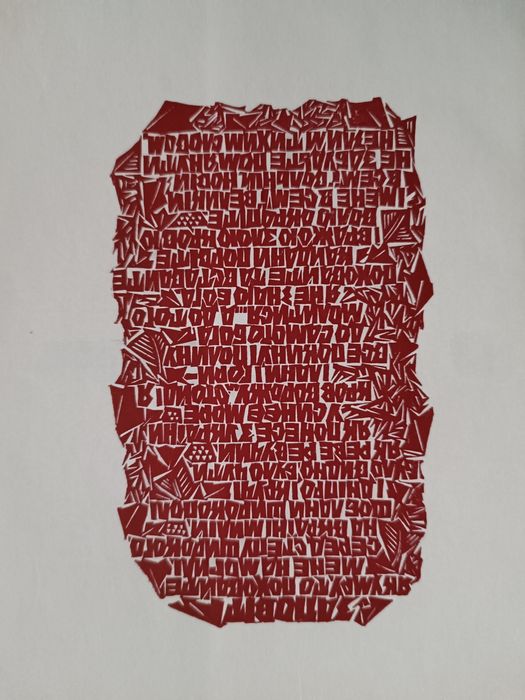 ЗАПОВІТ
ЯК УМРУ, ТО ПОХОВАЙТЕ
МЕНЕ НА МОГИЛІ,
СЕРЕД СТЕПУ ШИРОКОГО,
НА ВКРАЇНІ МИЛІЙ,
ЩОБ ЛАНИ ШИРОКОПОЛІ,
І ДНІПРО, І КРУЧІ
БУЛО ВИДНО, БУЛО ЧУТИ,
ЯК РЕВЕ РЕВУЧИЙ.
ЯК ПОНЕСЕ З УКРАЇНИ
У СИНЄЄ МОРЕ
КРОВ ВОРОЖУ... ОТОЙДІ Я
І ЛАНИ, І ГОРИ —
ВСЕ ПОКИНУ І ПОЛИНУ
ДО САМОГО БОГА
МОЛИТИСЯ... А ДО ТОГО
Я НЕ ЗНАЮ БОГА.
ПОХОВАЙТЕ ТА ВСТАВАЙТЕ,
КАЙДАНИ ПОРВІТЕ
І ВРАЖОЮ ЗЛОЮ КРОВ'Ю
ВОЛЮ ОКРОПІТЕ.
І МЕНЕ В СЕМ'Ї ВЕЛИКІЙ,
В СЕМ'Ї ВОЛЬНІЙ, НОВІЙ,
НЕ ЗАБУДЬТЕ ПОМ'ЯНУТИ
НЕЗЛИМ ТИХИМ СЛОВОМ.